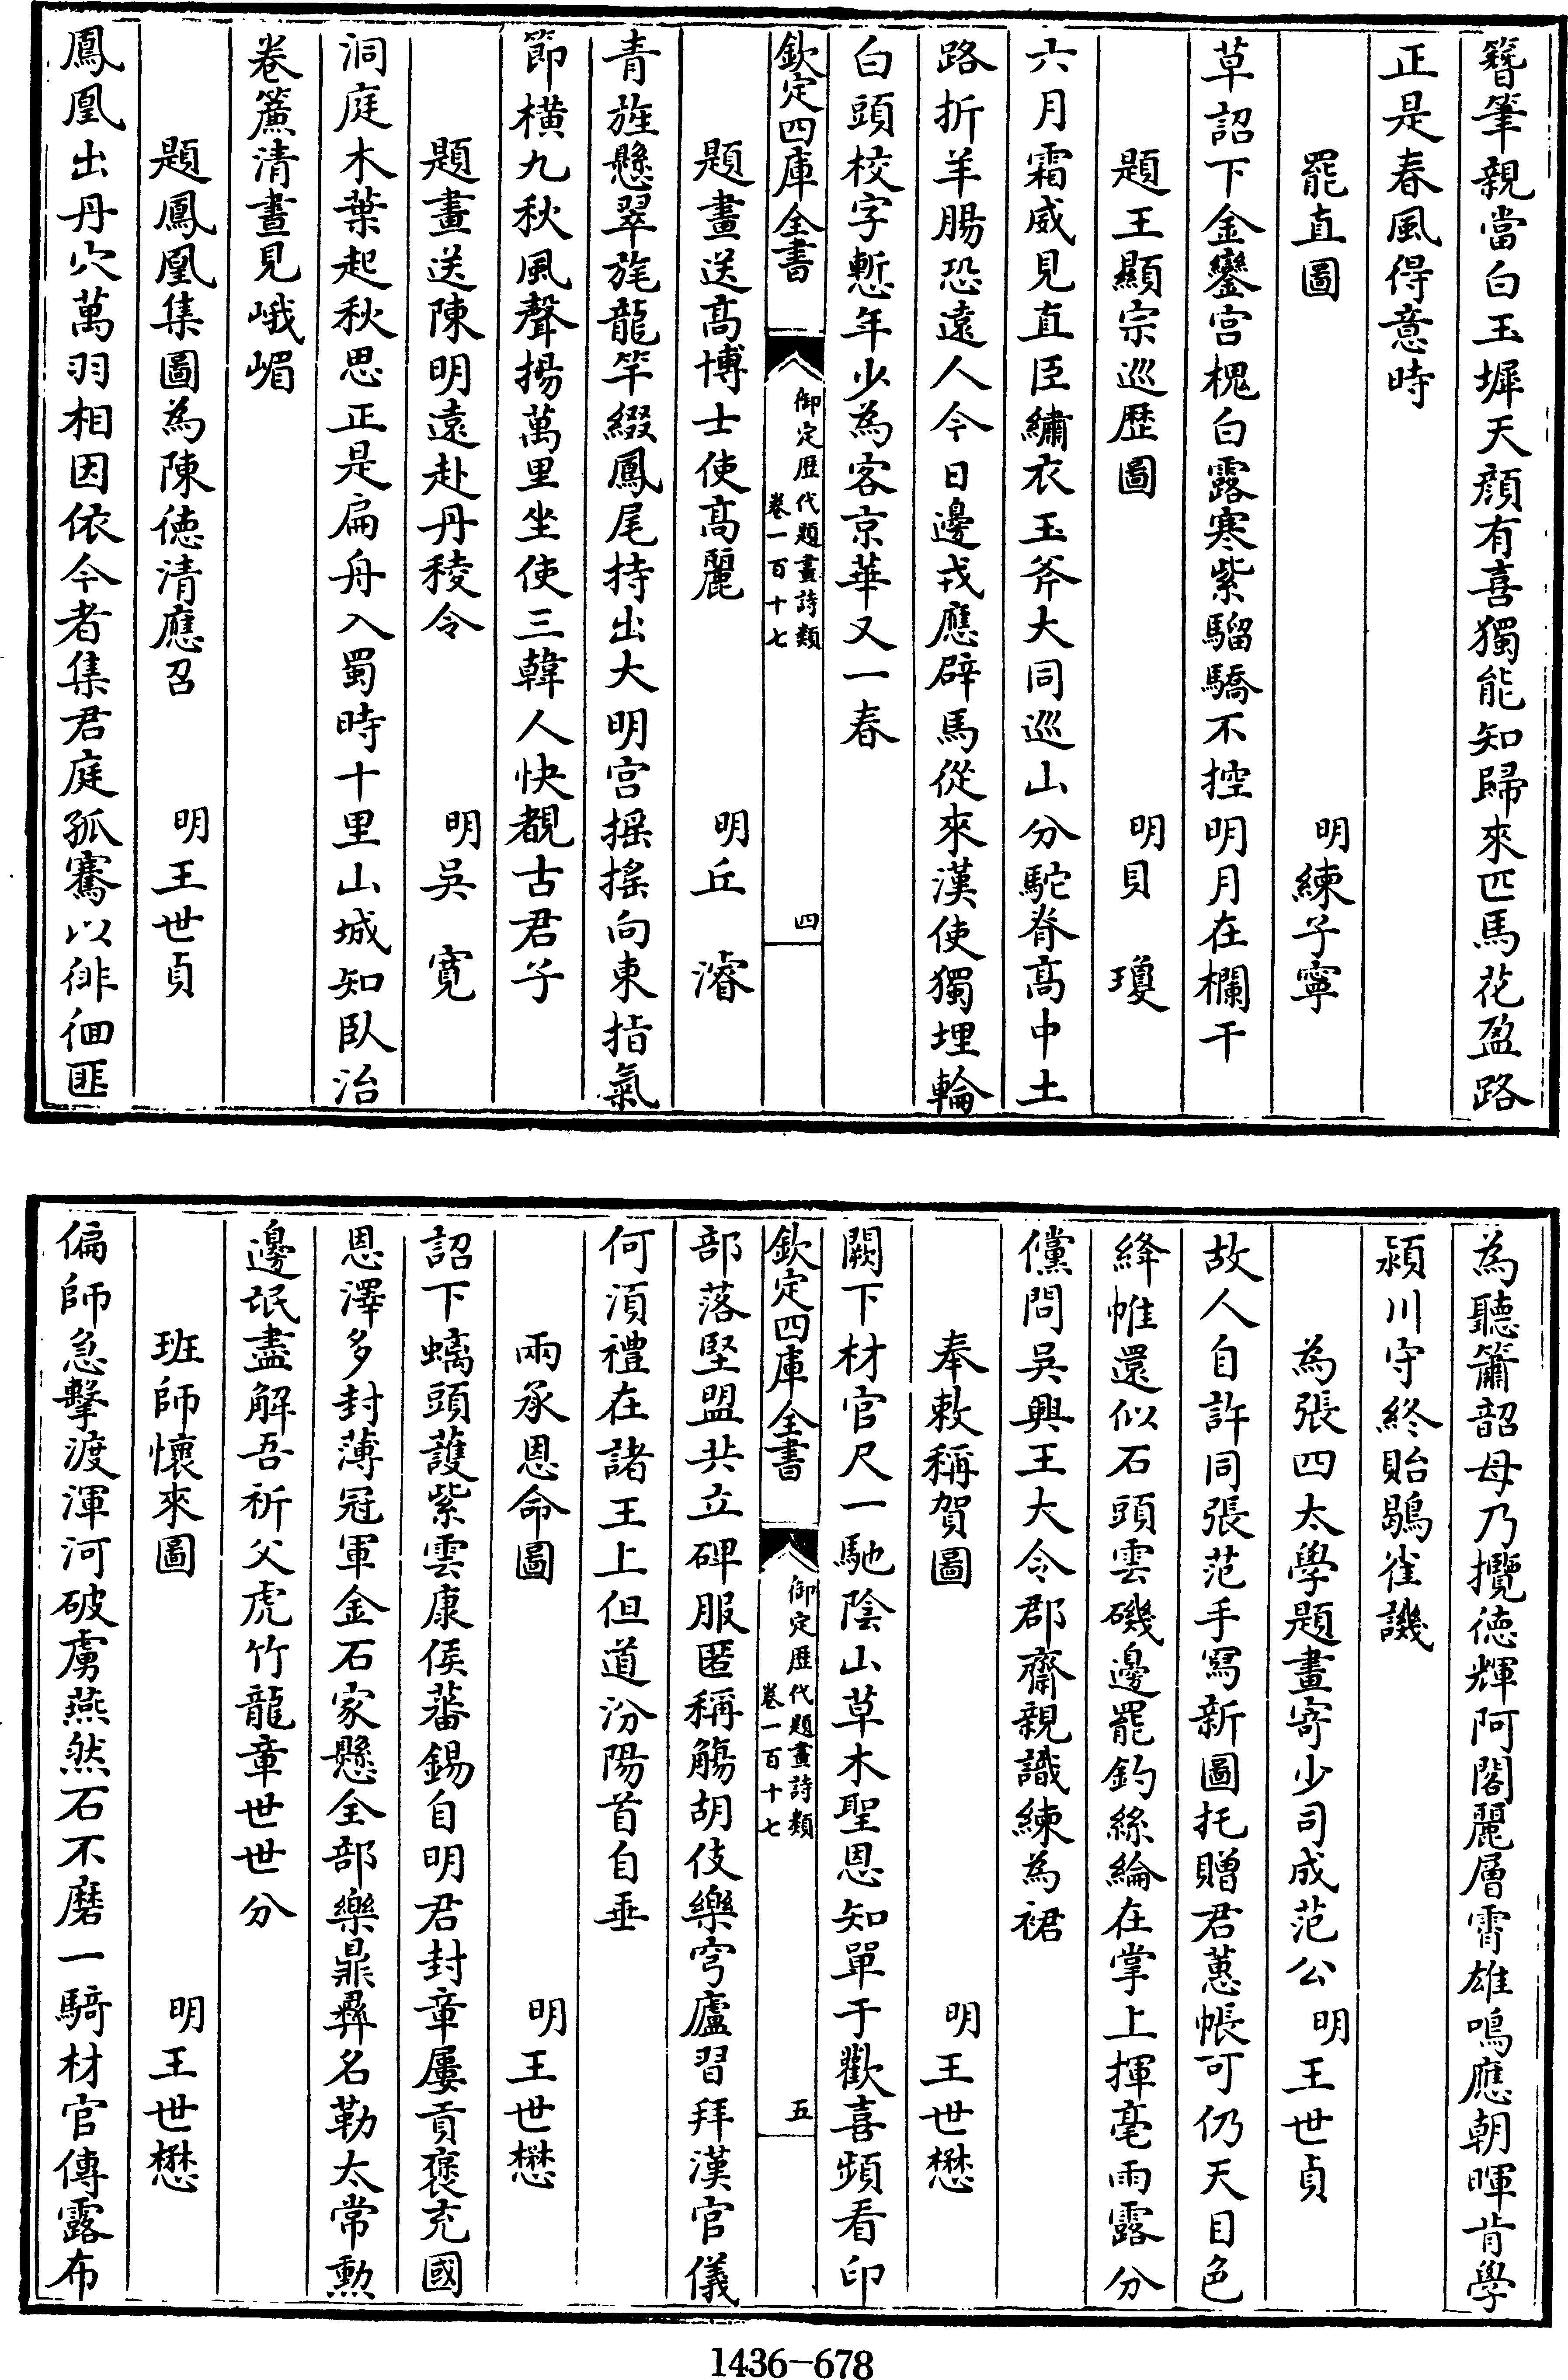 簪筆親當白玉墀天顔有喜獨能知歸來匹馬花盈路
正是春風得意時
罷直圖　明練子寧
草詔下金鑾宫槐白露寒紫騮驕不控明月在欄干
題王顯宗巡歴圖　明貝　瓊
六月霜威見直臣繡衣玉斧大同巡山分駝脊高中土
路折羊腸恐逺人今日邊戎應辟馬從來漢使獨埋輪
白頭校字慙年少為客京華又一春
欽定四庫全書　御定歴代題畫詩類　卷一百十七　四
題畫送髙博士使髙麗　明丘　濬
青旌懸翠旄龍竿綴鳳尾持出大明宫揺揺向東指氣
節横九秋風聲揚萬里坐使三韓人快覩古君子
題畫送陳明遠赴丹稜令　明吳　寛
洞庭木葉起秋思正是扁舟入蜀時十里山城知臥治
卷簾清晝見峨嵋
題鳳凰集圖為陳徳清應召　明王世貞
鳳凰出丹穴萬羽相因依今者集君庭孤騫以徘徊匪
為聽簫韶毋乃攬徳輝阿閣麗層霄雄鳴應朝暉肯學
潁川守終貽鶡雀譏
為張四太學題畫寄少司成范公　明王世貞
故人自許同張范手寫新圖托贈君蕙帳可仍天目色
絳帷還似石頭雲磯邊罷釣絲綸在掌上揮毫雨露分
儻問吳興王大令郡齋親識練為裙
奉敕稱賀圖　明王世懋
闕下材官尺一馳陰山草木聖恩知單于歡喜頻看印
欽定四庫全書　御定歴代題畫詩類　卷一百十七　五
部落堅盟共立碑服匿稱觴胡伎樂穹廬習拜漢官儀
何須禮在諸王上但道汾陽首自垂
兩承恩命圖　明王世懋
詔下螭頭護紫雲康侯蕃錫自明君封章屢貢褒充國
恩澤多封薄冠軍金石家懸全部樂鼎彛名勒太常勲
邊氓盡解吾祈父虎竹龍章世世分
班師懷來圖　明王世懋
偏師急擊渡渾河破虜燕然石不磨一騎材官傳露布
1436—678